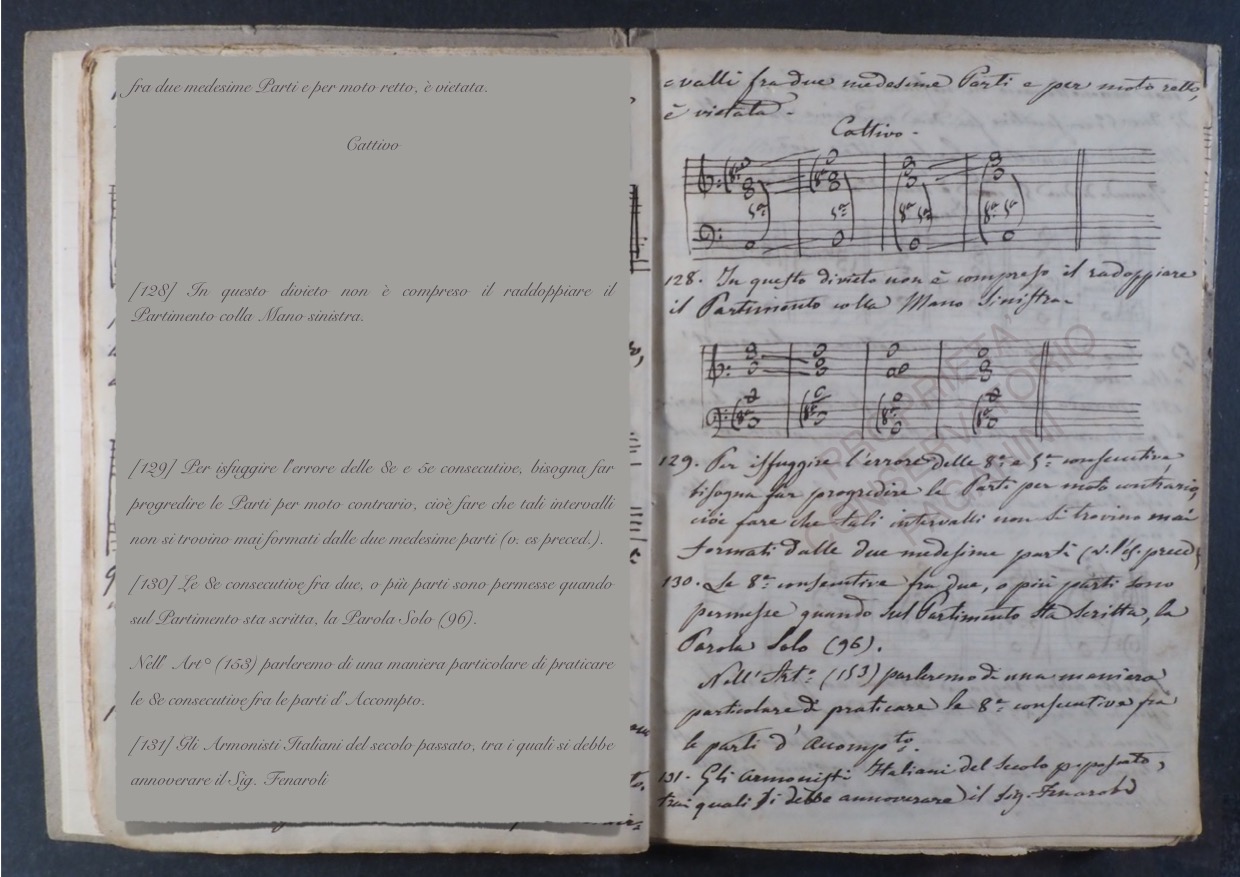 fra due medesime Parti e per moto retto, è vietata.
Cattivo
[128] In questo divieto non è compreso il raddoppiare il
Partimento colla Mano sinistra.
[129] Per isfuggire l'errore delle 8e e 5e consecutive, bisogna far
progredire le Parti per moto contrario, cioè fare che tali intervalli
non si trovino mai formati dalle due medesime parti (v. es preced.).
[130] Le 8e consecutive fra due, o più parti sono permesse quando
sul Partimento sta scritta, la Parola Solo (96).
Nell' Art° (153) parleremo di una maniera particolare di praticare
le 8e consecutive fra le parti d'Accompto.
[131] Gli Armonisti Italiani del secolo passato, tra i quali si debbe
annoverare il Sig. Fenaroli
valli fra due medesime Parti e per moto retto,
è vietata.
Cattivo.
8ª 8ª
5ª 5ª 8ª 5ª 8ª 5ª
128. In questo divieto non è compreso il radoppiare
il Partimento colla Mano Sinistra.
8ª 8ª 8ª 8ª
129. Per isfuggire l'errore delle 8e e 5e consecutive,
bisogna far progredire le Parti per moto contrario,
cioè fare che tali intervalli non si trovino mai
formati dalle due medesime parti (v. l'es. preced.)
130. Le 8e consecutive fra due, o più parti sono
permesse quando sul Partimento sta scritta, la
Parola Solo (96).
Nell'Art° (153) parleremo di una maniera
particolare di praticare le 8e consecutive fra
le parti d'Accompto.
131. Gli Armonisti Italiani del Secolo passato,
tra i quali si debbe annoverare il Sig. Fenaroli
PROPRIETA'
CONSERVATORIO
PAGANINI